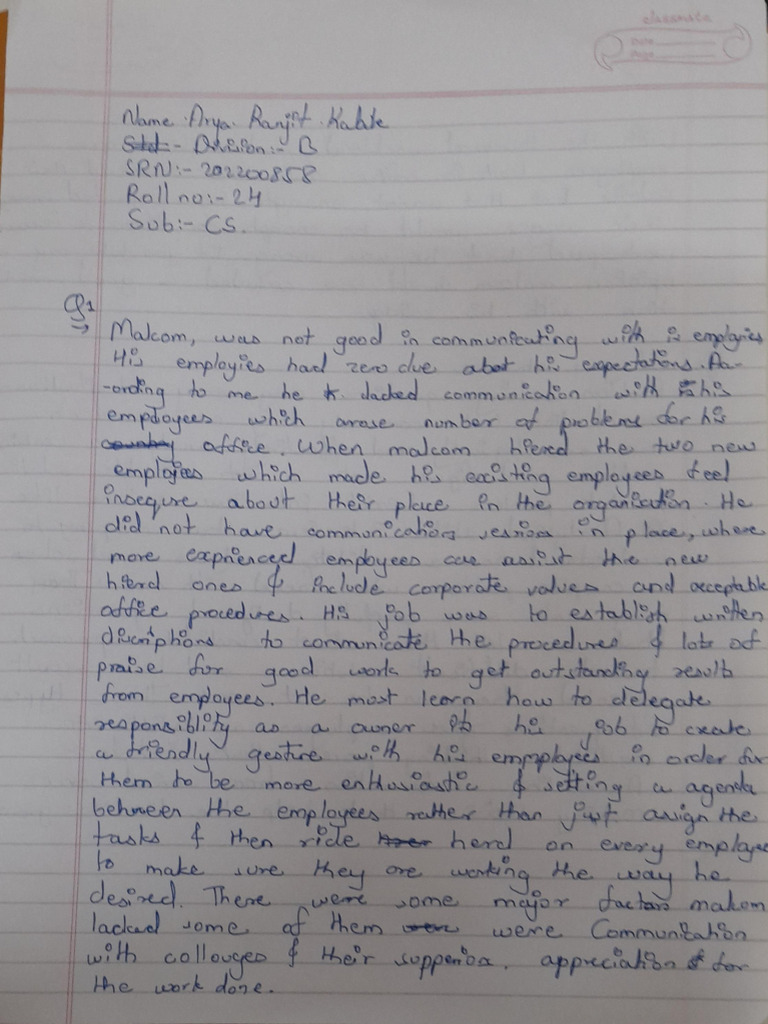 classmate
Date
Page
Name :Arya Ranjit Kalate
Std - Division:- B
SRN:- 202200858
Roll no:- 24
Sub:- CS.
Q1
Malcom, was not good in communicating with is employies
His employies had zero clue abot his expectations. Ac-
-ording to me he lacked communication with his
employees which arose number of problems for his
country office. When malcom hiered the two new
employies which made his existing employees feel
insequre about their place in the organisation. He
did not have communication session in place, where
more exprienced employees can assist the new
hierd ones & include corporate values and acceptable
office procedures. His job was to establish written
discriptions to communicate the procedures & lots of
praise for good work to get outstanding results
from employees. He most learn how to delegate
responsiblity as a owner its his job to create
a friendly gesture with his empmployees in order for
them to be more enthusiastic & setting a agenda
between the employees rather than just assign the
tasks & then ride herd on every employee
to make sure they are working the way he
desired. There were some major factors malcom
lacked some of them were Communication
with collouges & their supperiox. appreciation for
the work done.